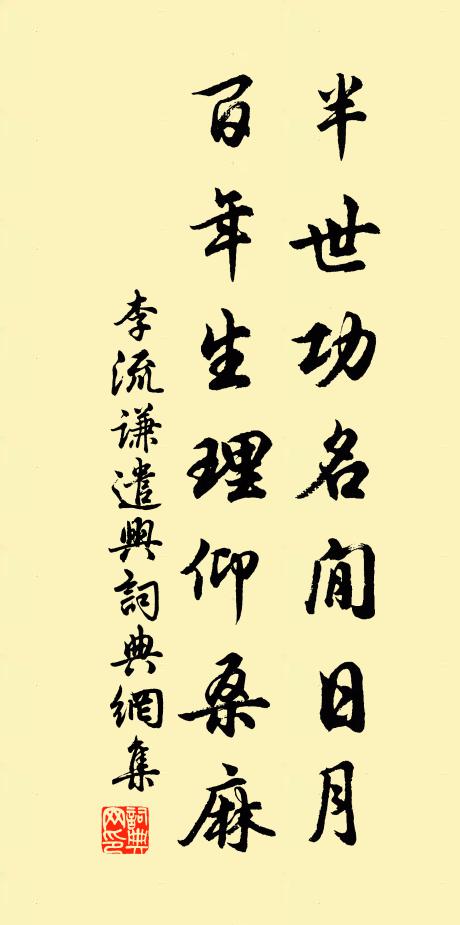 半世功名閒日月
百年生理仰桑麻
李流謙遣興詞典網集
詞典网印